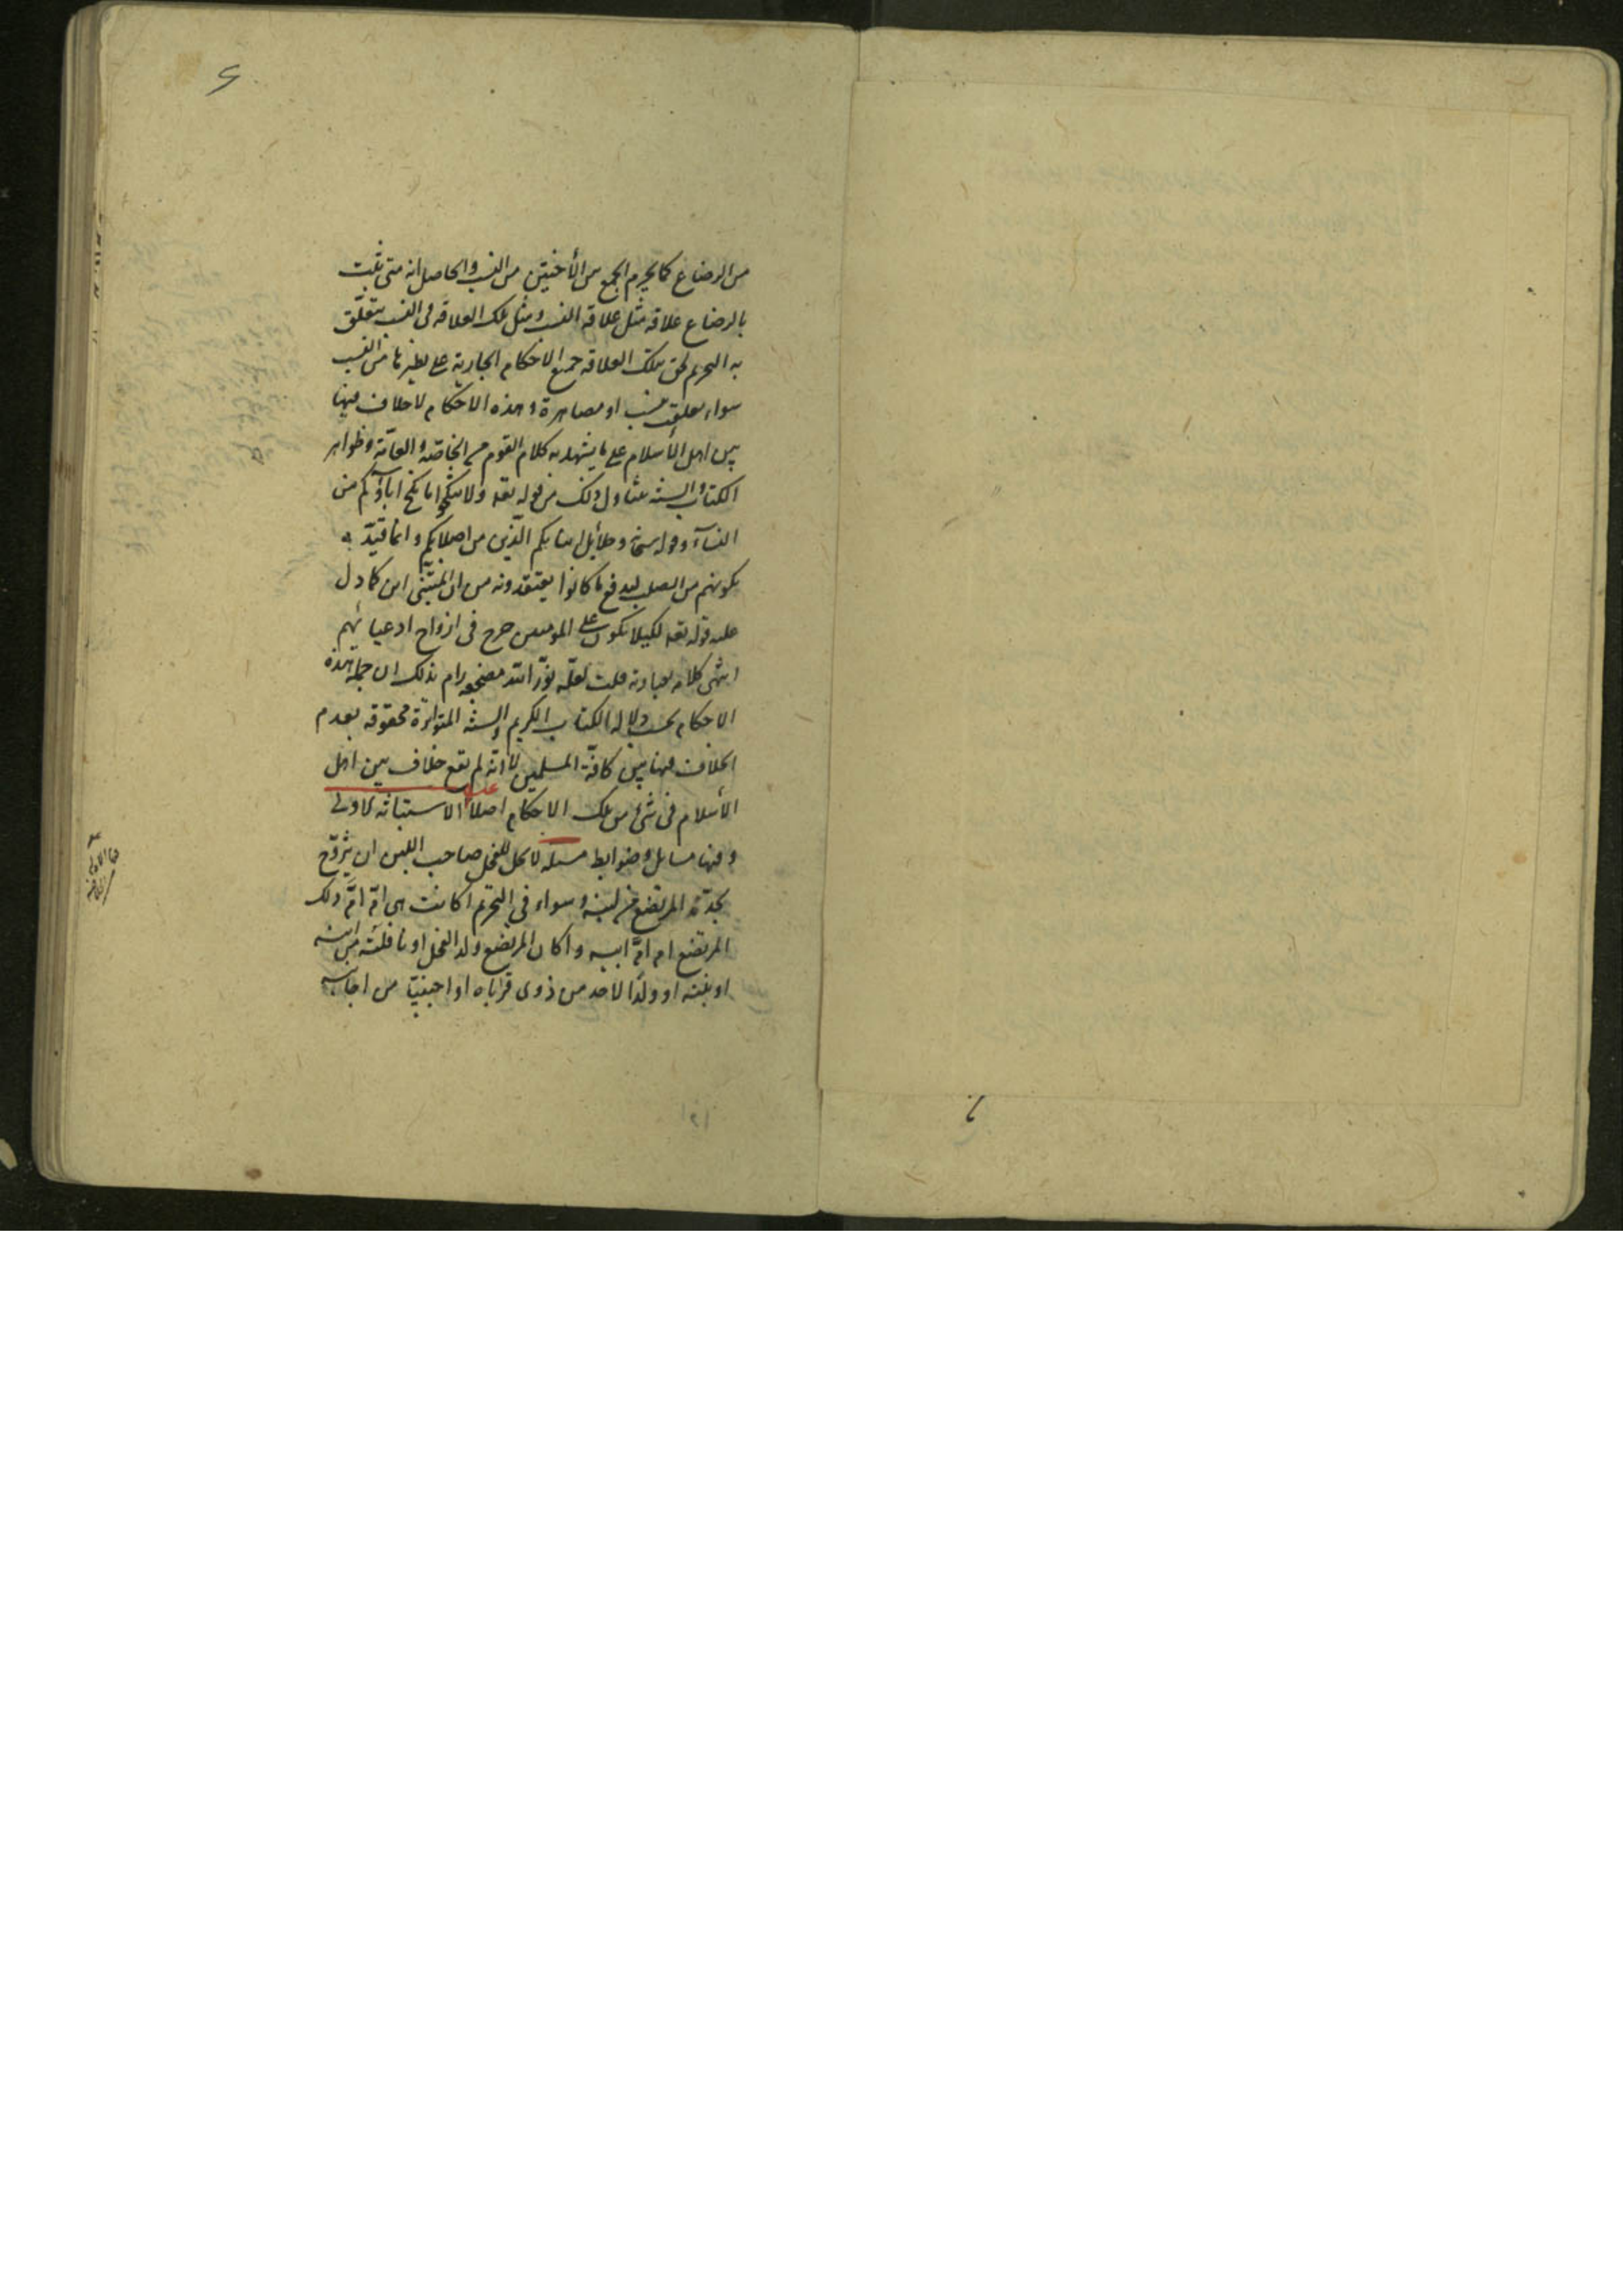 من الرضاع كما يحرم الجمع بين الأختين من النسب والحاصل انه متى ثبت
بالرضاع علاقة مثل علاقة النسب ومثل تلك العلاقة في النسب يتعلّق
به التحريم لحق بتلك العلاقة جميع الاحكام الجارية على نظيرها من النسب
سواء تعلقت بنسب او مصاهرة وهذه الاحكام لا خلاف فيها
بين اهل الأسلام على ما يشهد به كلام القوم من الخاصّة والعامّة وظواهر
الكتاب والسنة يتناول ذلك من قوله تعه ولا تنكحوا ما نكح اباؤكم من
النسآء وقوله سبحانه وحلائل ابنائكم الّذين من اصلابكم وانما قيّد به
بكونهم من الصلب ليدفع ما كانوا يعتقدونه من ان المتبنّى ابن كما دل
عليه قوله تعه لكيلا يكون على المومنين حرج فى ازواج ادعيائهم
انتهى كلامه بعبارته قلت لعلّه نوّر الله مضجعه رام بذلك ان جملة هذه
الاحكام بحسب دلالة الكتاب الكريم والسنة المتواترة محقوقة بعدم
الخلاف فيها بين كافّة المسلمين لا انّه لم يقع خلاف بين اهل
الأسلام فى شئ من تلك الاحكام اصلاً الاستبانة الاولى
وفيها مسائل وضوابط مسئلة لا يحل للفحل صاحب اللبن ان يتزوّج
بجدّة المرتضع من لبنه وسواء فى التحريم اكانت هى امّ امّ ذلك
المرتضع ام امّ ابيه واكان المرتضع ولد الفحل او نافلته من ابنه
او بنته او ولدا لاحد من ذوى قراباه او اجنبيّا من اجانبه